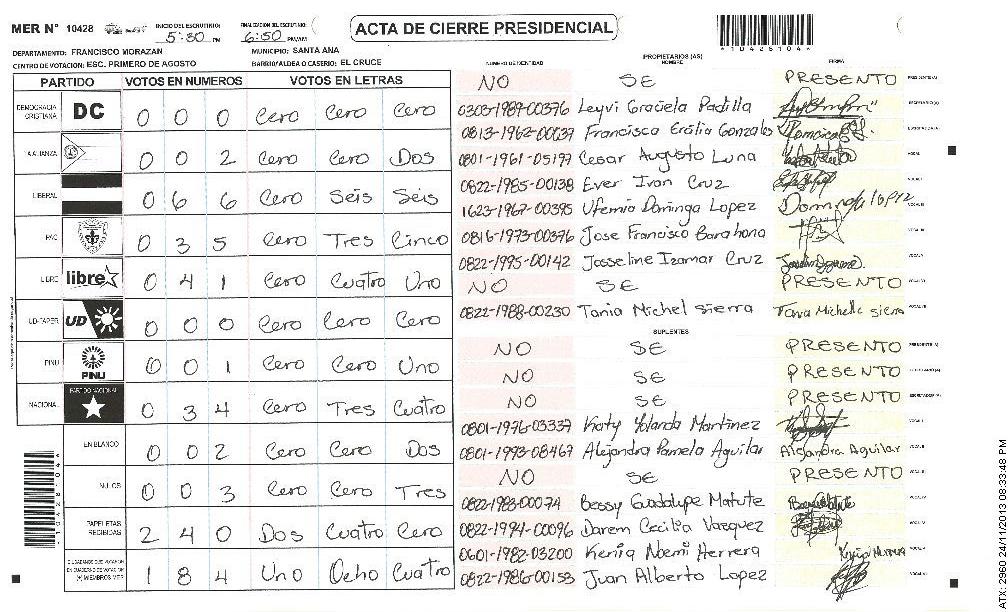 MER N° 10428
INICIO DEL ESCRUTINIO: 5:30 PM
FINALIZACION DEL ESCRUTINIO: 6:50 PM/AM
ACTA DE CIERRE PRESIDENCIAL
*10428104*
DEPARTAMENTO: FRANCISCO MORAZAN
MUNICIPIO: SANTA ANA
CENTRO DE VOTACION: ESC. PRIMERO DE AGOSTO
BARRIO/ALDEA O CASERIO: EL CRUCE
PARTIDO VOTOS EN NUMEROS VOTOS EN LETRAS
DEMOCRACIA CRISTIANA DC 0 0 0 Cero Cero Cero
LA ALIANZA 0 0 2 Cero Cero Dos
LIBERAL 0 6 6 Cero Seis Seis
PAC 0 3 5 Cero Tres Cinco
LIBRE libre 0 4 1 Cero Cuatro Uno
UD-FAPER UD 0 0 0 Cero Cero Cero
PINU PINU 0 0 1 Cero Cero Uno
NACIONAL PARTIDO NACIONAL 0 3 4 Cero Tres Cuatro
EN BLANCO 0 0 2 Cero Cero Dos
NULOS 0 0 3 Cero Cero Tres
PAPELETAS RECIBIDAS 2 4 0 Dos Cuatro Cero
CIUDADANOS QUE VOTARON EN CUADERNO DE VOTACION (+) MIEMBROS MER 1 8 4 Uno Ocho Cuatro
PROPIETARIOS (AS)
NUMERO DE IDENTIDAD NOMBRE FIRMA
NO SE PRESENTO PRESIDENTE (A)
0303-1989-00376 Leyvi Graciela Padilla SECRETARIO (A)
0813-1962-00037 Francisca Ercilia Gonzales
0801-1961-05197 Cesar Augusto Luna VOCAL
0822-1985-00138 Ever Ivan Cruz
1623-1967-00395 Ufemia Dominga Lopez Dominga lopez
0816-1973-00376 Jose Francisco Barahona
0822-1995-00142 Josseline Izamar Cruz
NO SE PRESENTO
0822-1988-00230 Tania Michel Sierra Tania Michelle Sierra
SUPLENTES
NO SE PRESENTO PRESIDENTE (A)
NO SE PRESENTO
NO SE PRESENTO
0801-1976-03337 Katy Yolanda Martinez
0801-1993-08467 Alejandra Pamela Aguilar Alejandra Aguilar
NO SE PRESENTO
0822-1983-00074 Bessy Guadalupe Matute
0822-1994-00096 Darem Cecilia Vasquez
0601-1982-03200 Kenia Noemi Herrera
0822-1986-00153 Juan Alberto Lopez
*10428104*
ATX 2960 24/11/2013 08:33:48 PM